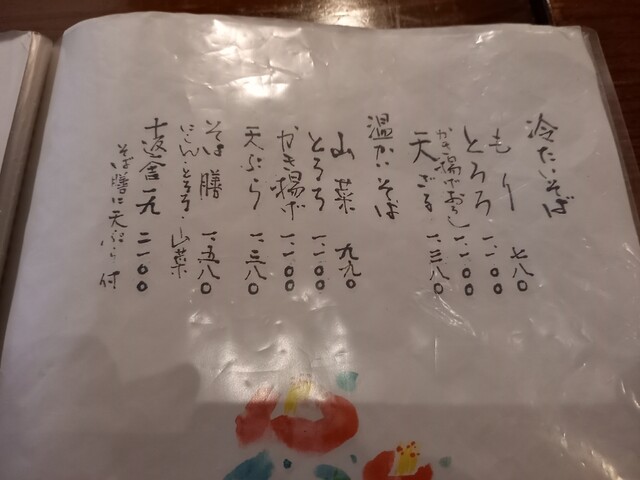 冷たいそば
もり 七八〇
とろろ 一、一〇〇
かき揚げおろし 一、一〇〇
天ざる 一、三八〇
温かいそば
山菜 九九〇
とろろ 一、一〇〇
かき揚げ 一、一〇〇
天ぷら 一、三八〇
そば膳 一、五八〇
にしん・とろろ・山菜
十返舎一九 二一〇〇
そば膳に天ぷら付